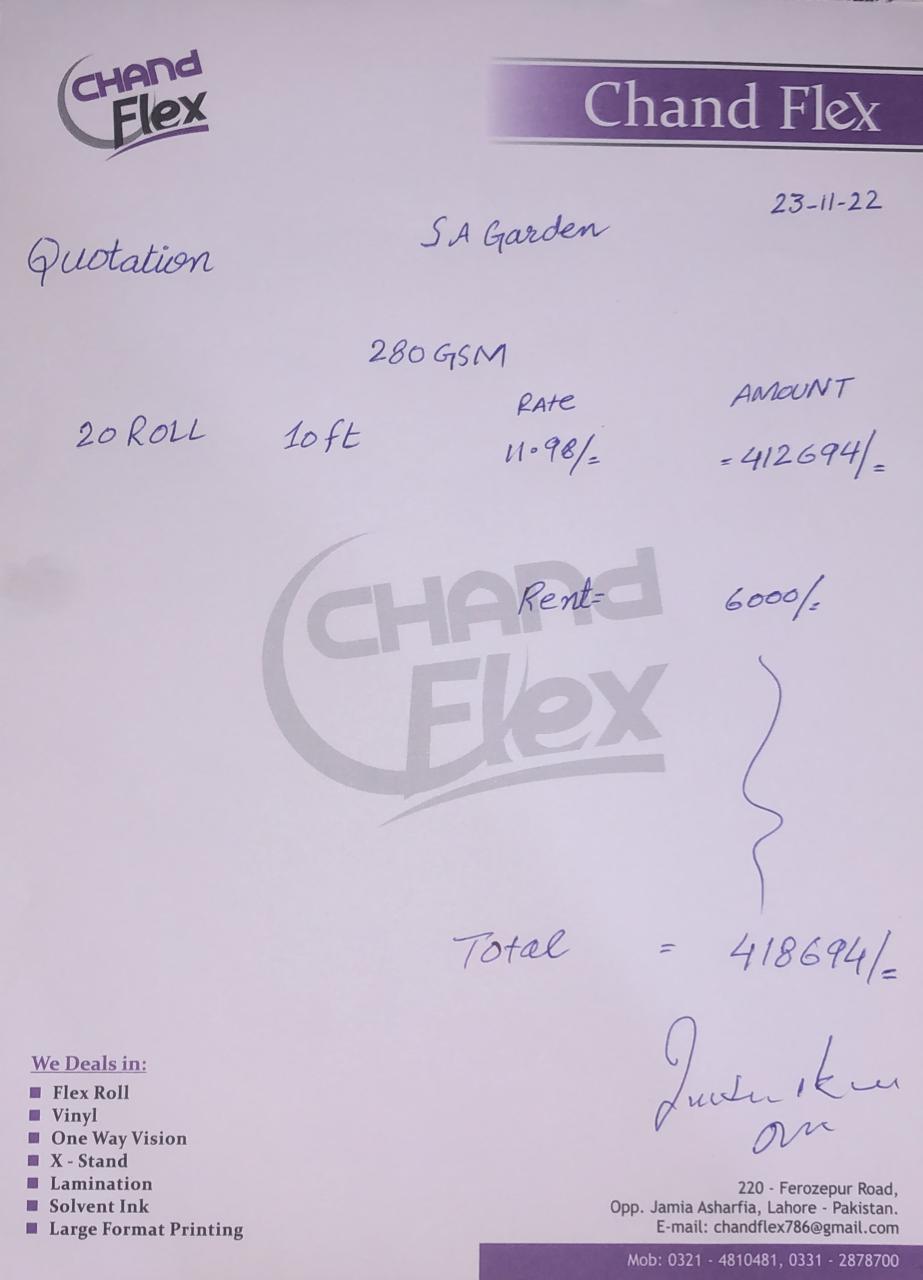 CHAND
Flex
Chand Flex
23-11-22
SA Garden
Quotation
280 GSM
RATE AMOUNT
20 ROLL 10ft 11.98/= = 412694/=
CHAND
Flex
Rent= 6000/=
Total = 418694/=
We Deals in:
Flex Roll
Vinyl
One Way Vision
X - Stand
Lamination
Solvent Ink
Large Format Printing
220 - Ferozepur Road,
Opp. Jamia Asharfia, Lahore - Pakistan.
E-mail: chandflex786@gmail.com
Mob: 0321 - 4810481, 0331 - 2878700